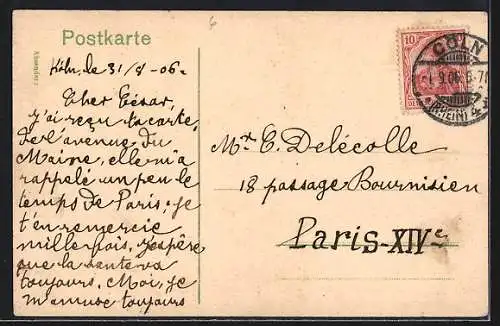 Postkarte
Absender:
Köln, le 31/8 - 06.
Cher César,
j'ai reçu ta carte
de l'avenue du
Maine, elle m'a
rappelé un peu le
temps de Paris; je
t'en remercie
mille fois, j'espère
que la santé va
toujours, Moi, je
m'amuse toujours
10
CÖLN
1.9.06. 6-7
(RHEIN) 4
Mr. C. Delécolle
18 passage Bournisien
Paris-XIVe